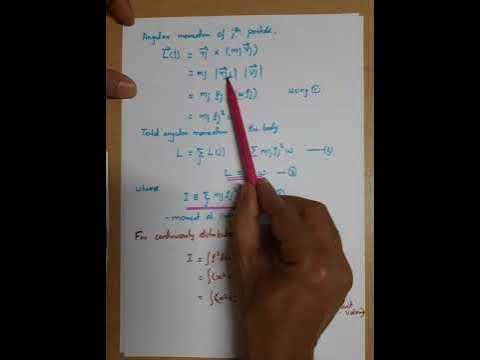 Angular momentum of jth particle,
L(j) = r⃗j × (mj v⃗j)
= mj |r⃗j⊥| |v⃗j|
= mj ρj (ωρj) using ①
= mj ρj² ω
Total angular momentum of the body
L = Σj L(j) = Σ mj ρj² ω
L = ω — ③
where I ≡ Σj mj ρj²
- moment of
For continuously distributed
I = ∫ρ²dm
= ∫(x²+
= ∫(x²+
unit
volume